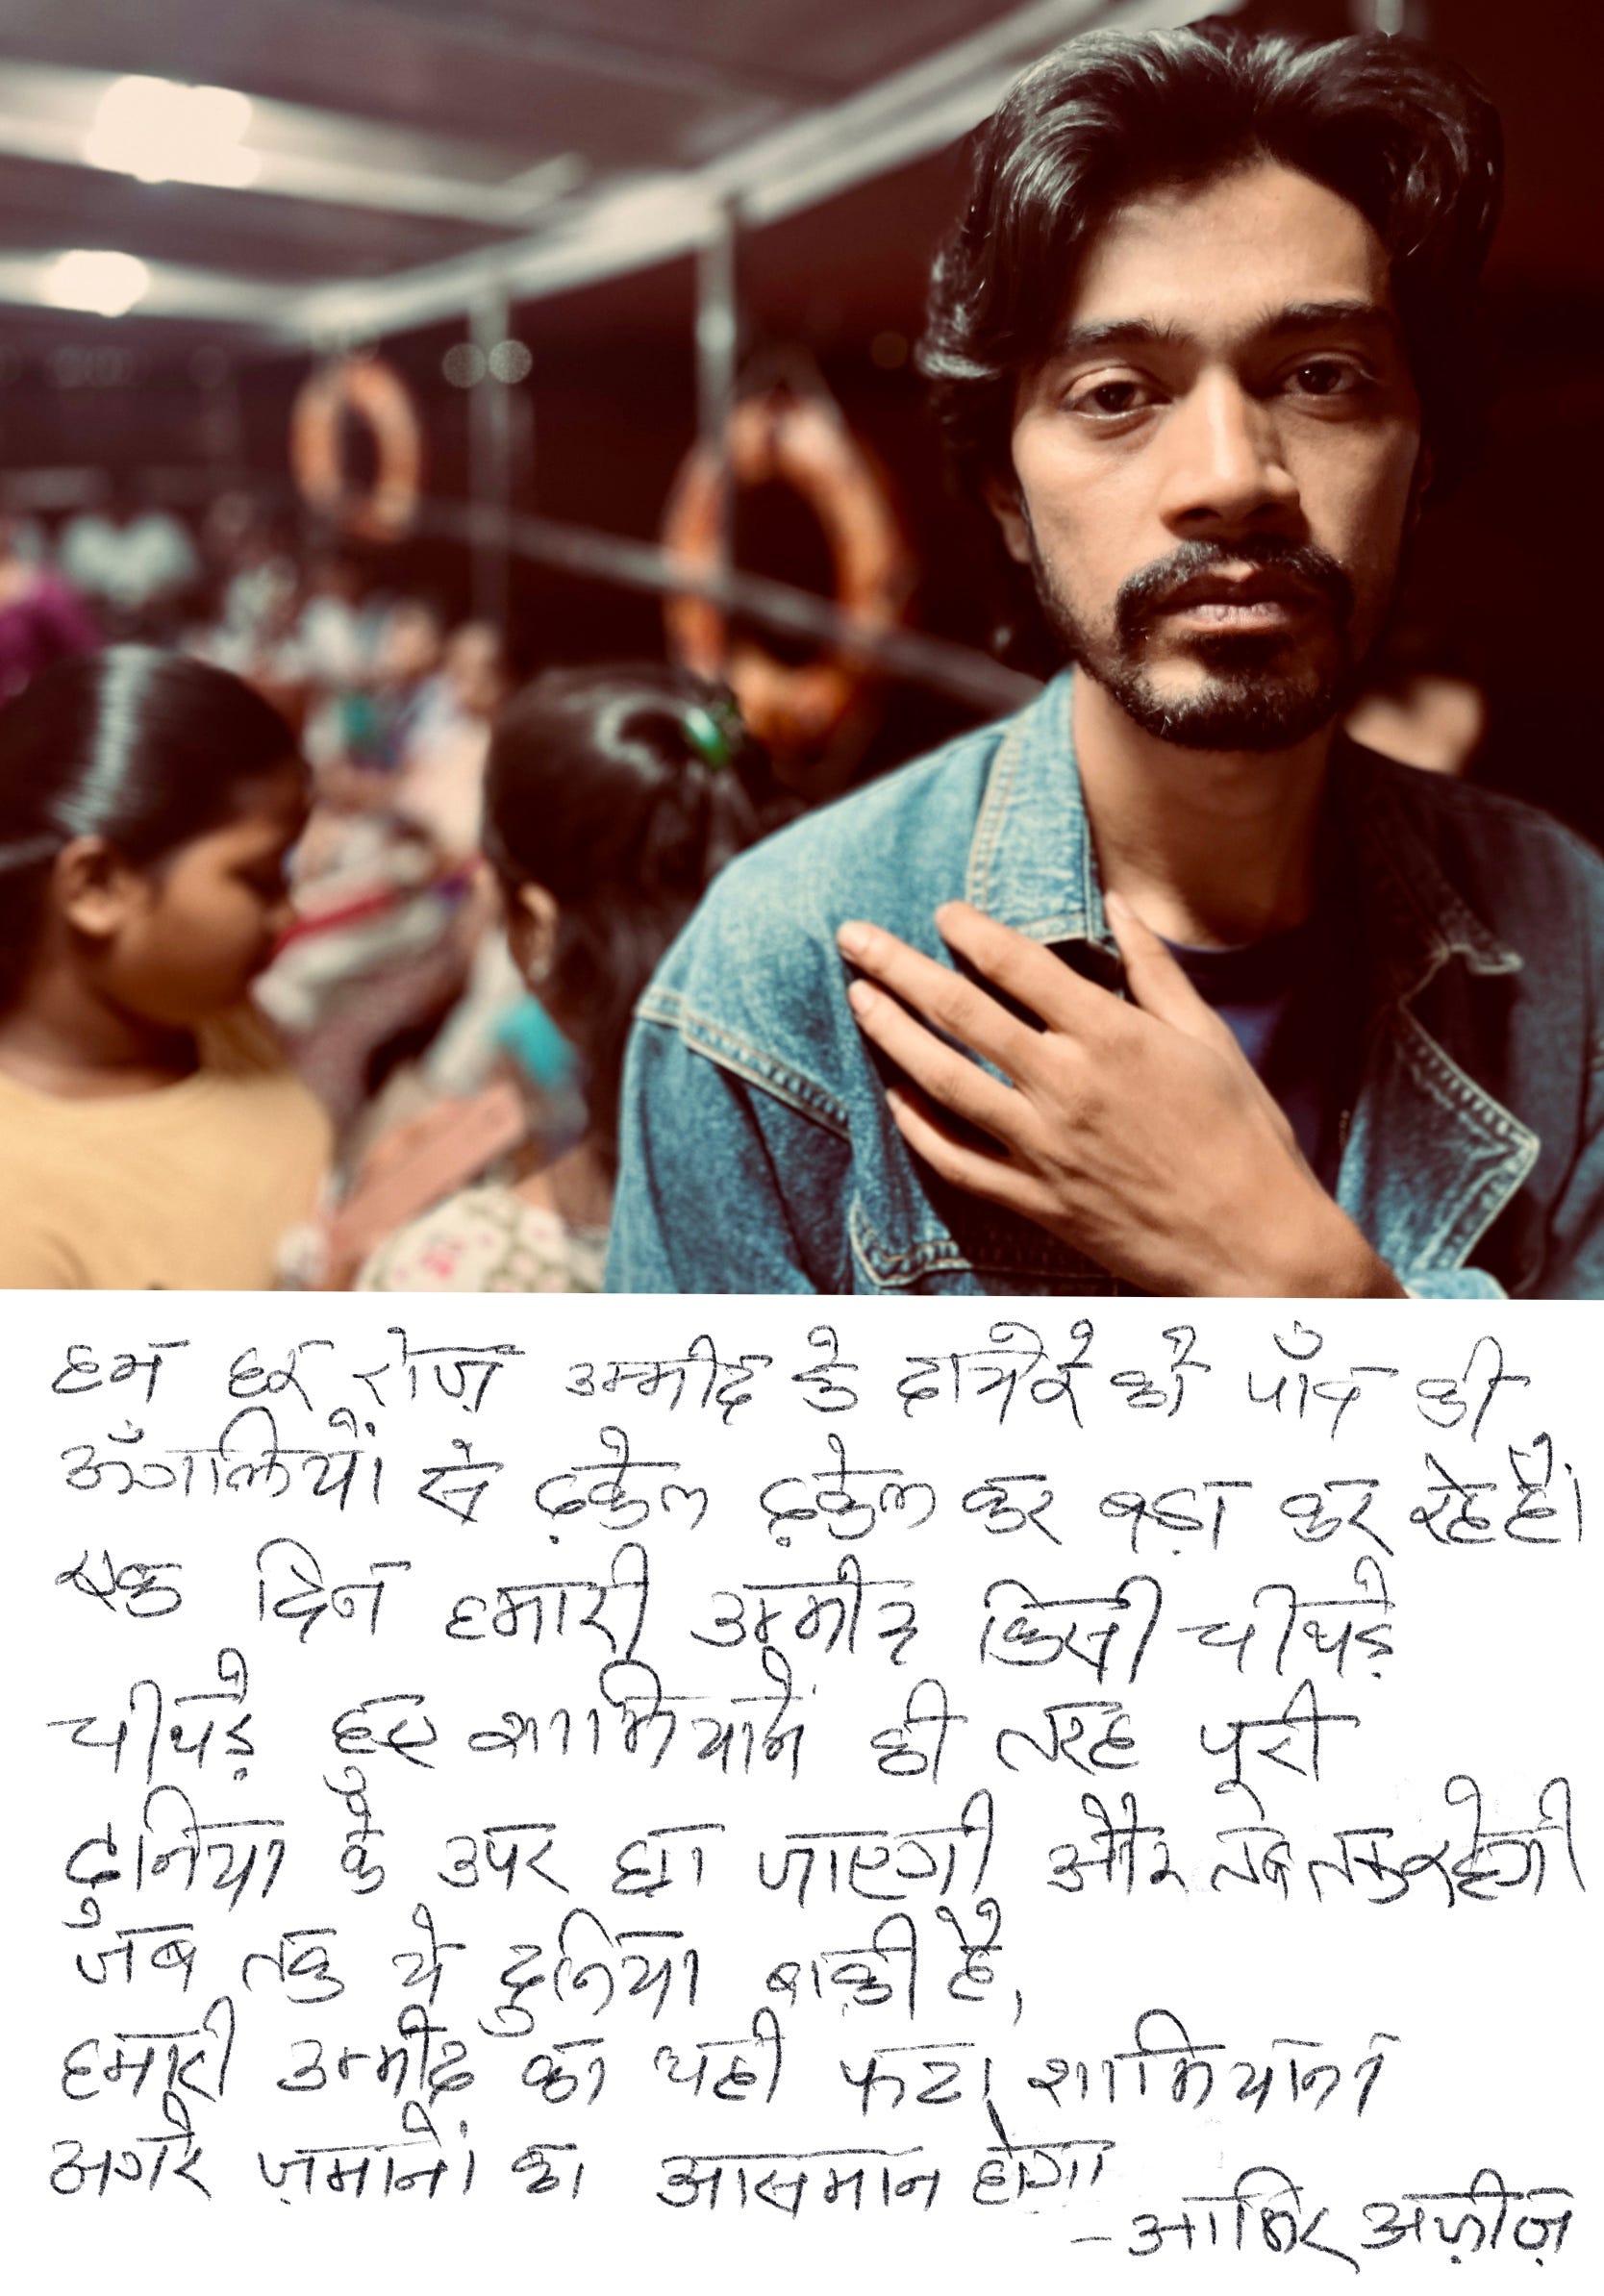 हम हर रोज़ उम्मीद के दायरे को पाँव की
उँगलियों से ढ़केल ढ़केल कर बड़ा कर रहे हैं।
एक दिन हमारी उम्मीद किसी चीथड़े
चीथड़े हुए शामियाने की तरह पूरी
दुनिया के उपर छा जाएगी और तब तक रहेगी
जब तक ये दुनिया बाक़ी है,
हमारी उम्मीद का यही फटा शामियाना
अगले ज़मानों का आसमान होगा
- आमिर अज़ीज़